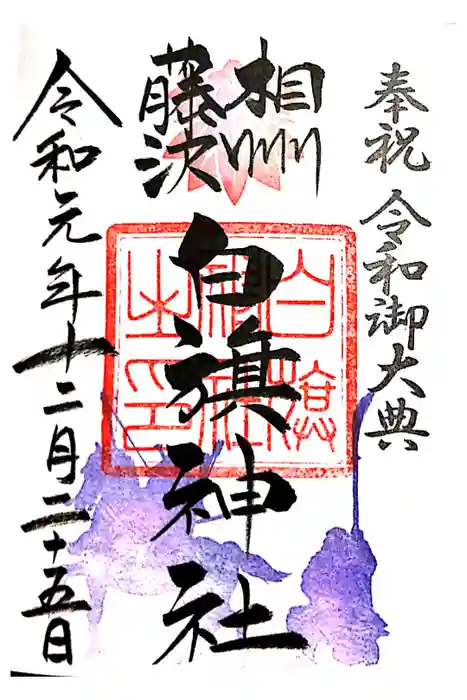 奉祝 令和御大典
相州
藤沢
白旗神社
白旗神社之印
令和元年十二月二十五日